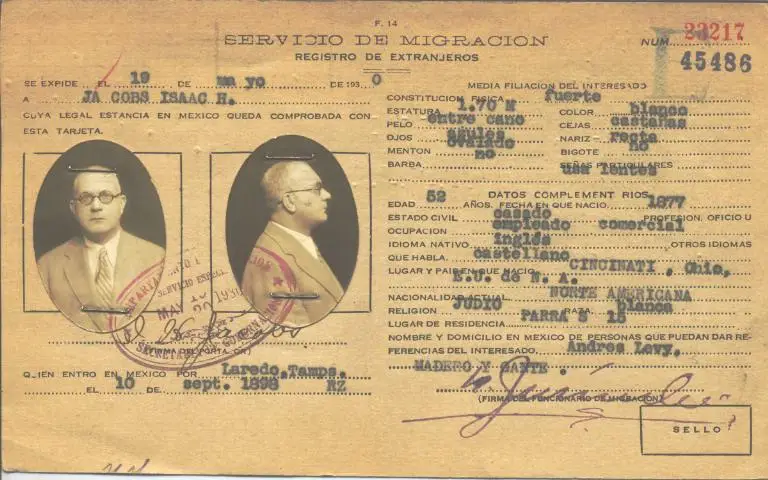 F. 14
SERVICIO DE MIGRACION
REGISTRO DE EXTRANJEROS
NUM. 23217
45486
SE EXPIDE EL 19 DE mayo DE 1930
A JACOBS ISAAC H.
CUYA LEGAL ESTANCIA EN MEXICO QUEDA COMPROBADA CON
ESTA TARJETA.
MAY 19 1930
(FIRMA DEL PORTADOR)
QUIEN ENTRO EN MEXICO POR Laredo, Tamps.
EL 10 DE sept. 1898 RZ
MEDIA FILIACION DEL INTERESADO
CONSTITUCION FISICA fuerte
ESTATURA 1.70 M COLOR blanco
PELO entre cano CEJAS castañas
OJOS azules NARIZ recta
MENTON ovalado BIGOTE no
BARBA no SEÑAS PARTICULARES
usa lentes
DATOS COMPLEMENTARIOS
EDAD 52 AÑOS. FECHA EN QUE NACIO 1877
ESTADO CIVIL casado PROFESION, OFICIO U
OCUPACION empleado comercial
IDIOMA NATIVO inglés OTROS IDIOMAS
QUE HABLA castellano
LUGAR Y PAIS EN QUE NACIO CINCINATI, Ohio,
E.U. de N. A.
NACIONALIDAD ACTUAL NORTE AMERICANA
RELIGION JUDIO RAZA blanca
LUGAR DE RESIDENCIA PARRA S 15
NOMBRE Y DOMICILIO EN MEXICO DE PERSONAS QUE PUEDAN DAR RE-
FERENCIAS DEL INTERESADO. Andres Levy.
MADERO Y GANTE.
(FIRMA DEL FUNCIONARIO DE MIGRACION)
SELLO